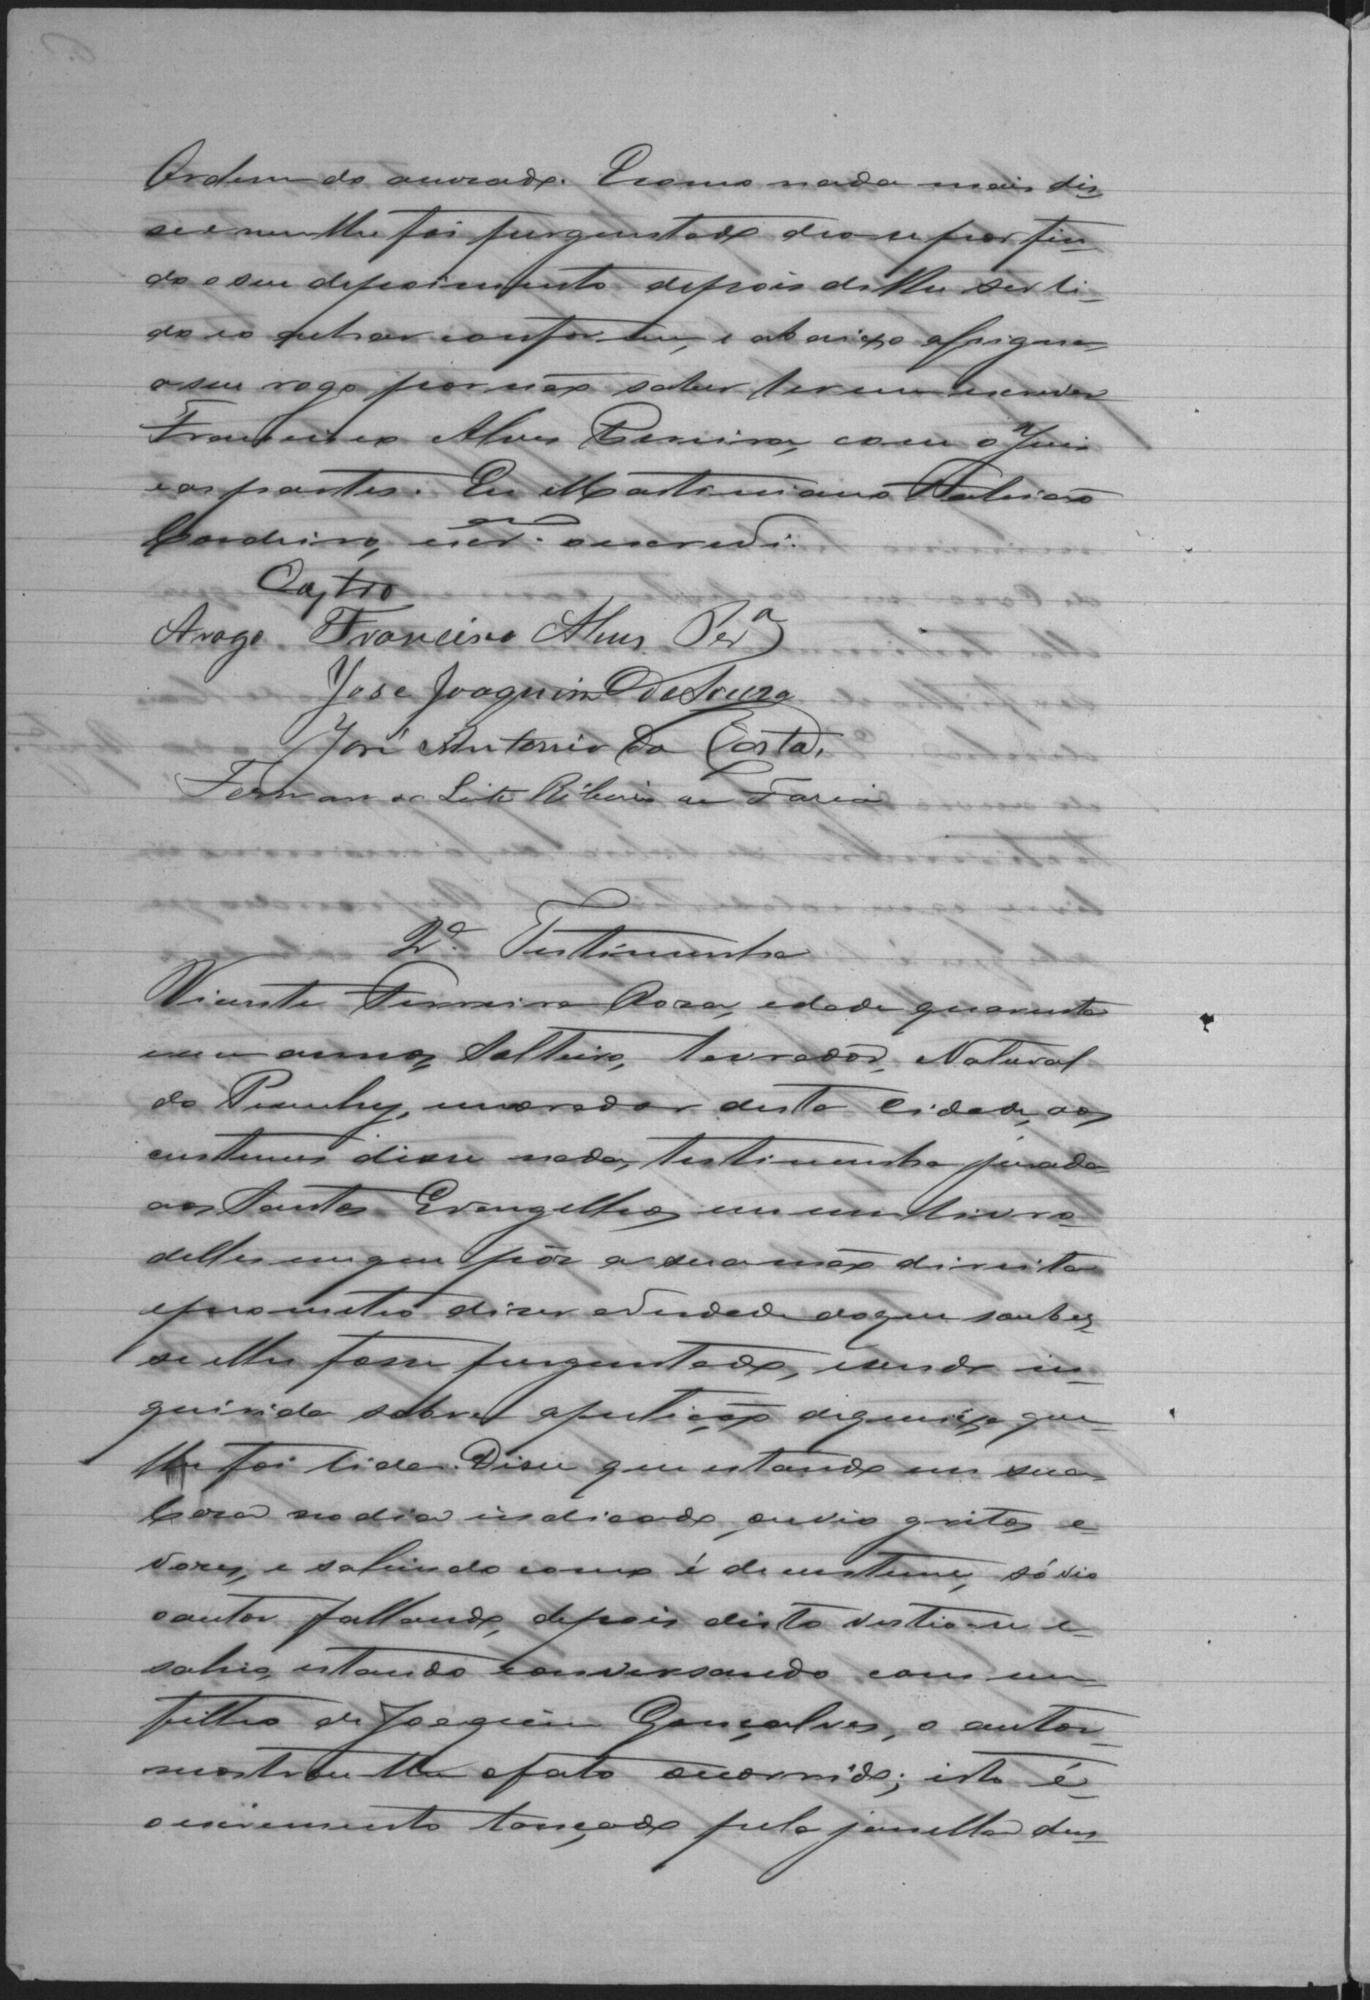 Ordem do accusado. E como nada mais dis-
se e nem lhe foi perguntado deo-se por fin-
do o seu depoimento depois de lhe ser li-
do e o achar conforme, e abaixo assigna
a seu rogo por não saber ler nem escrever
Francisco Alves Pereira, com o Juiz
e as partes. Eu Martiniano
Cordeiro, escrm. o escrevi.
Castro
Arogo Francisco Alves Pera
Jose Joaquim de Souza
José Antonio da Costa.
Leite Ribeiro de Faria
2ª. Testimunha
Vicente Ferreira Roza, edade quarenta
e um annos, solteiro, lavrador, Natural
do Piauhy, morador desta Cidade, aos
custumes disse nada, testimunha jurada
aos Santos Evangelhos em um livro
delles em que pôz a sua mão direita
e prometteo dizer a verdade do que soubes-
se e lhe fosse perguntado, e sendo in-
quirida sobre a petição de queixa que
lhe foi lida. Disse que estando em sua
Caza no dia indicado, ouvio gritos e
vozes, e sahindo como é de custume, só vio
o autor fallando, depois disto vestio-se e
sahio, estando conversando com um
filho de Joaquim Gonçalves, o autor
mostrou-lhe o fato occorrido; isto é
o escremento lançado pela janella des-